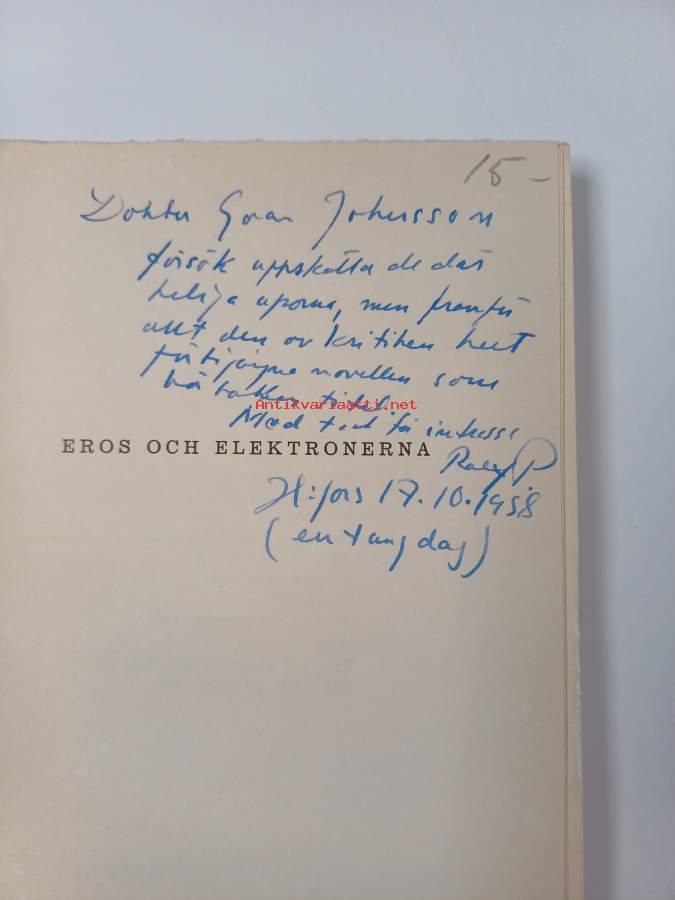 15 –
Doktor Göran Johansson
försök uppskatta de där
heliga aporna, men framför
allt den av kritiken helt
förbigångna novellen som
bär bokens titel.
Antikvariaatti.net
Med tack för intresse
Ralf P
EROS OCH ELEKTRONERNA
H:fors 17.10.1958
(en tung dag)